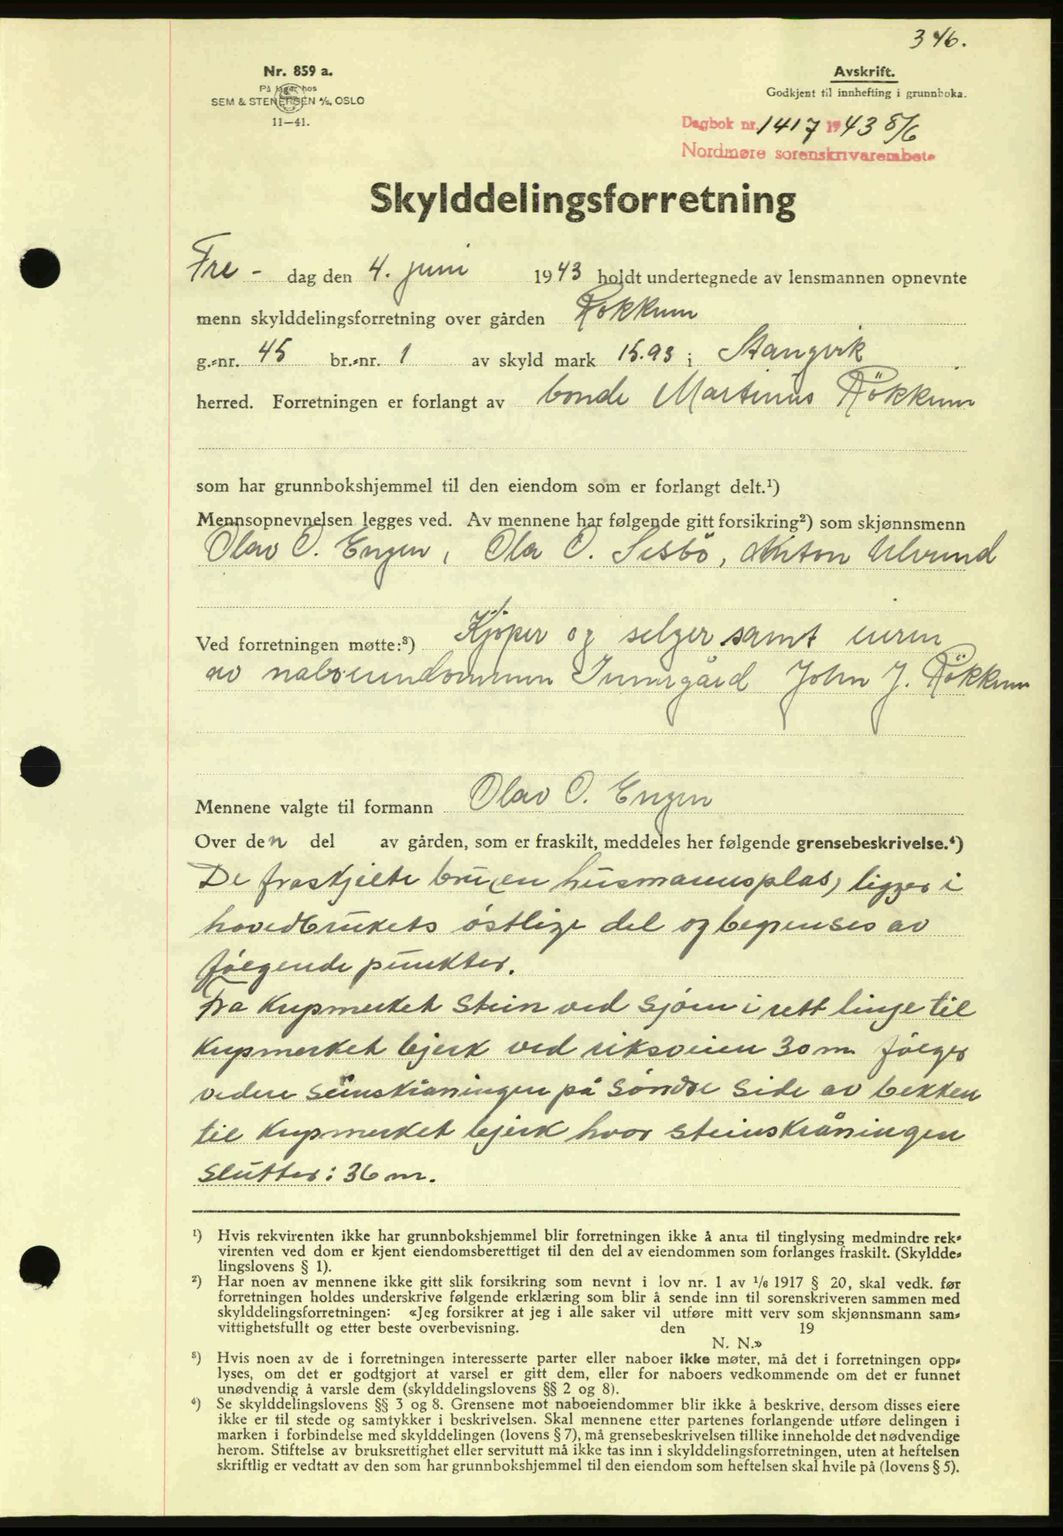 346.
Nr. 859 a.
På lager hos
SEM & STENERSEN A/S, OSLO
11—41.
Avskrift.
Godkjent til innhefting i grunnboka.
Dagbok nr. 1417 1943 8/6
Nordmøre sorenskrivarembete
Skylddelingsforretning
Fre - dag den 4. juni 1943 holdt undertegnede av lensmannen opnevnte
menn skylddelingsforretning over gården Rökkum
g.-nr. 45 br.-nr. 1 av skyld mark 15.93 i Stangvik
herred. Forretningen er forlangt av bonde Martinus Rökkum
som har grunnbokshjemmel til den eiendom som er forlangt delt.¹)
Mennsopnevnelsen legges ved. Av mennene har følgende gitt forsikring²) som skjønnsmenn
Olav O. Engen, Ola O. Sesbö, Anton Ulvund
Ved forretningen møtte:³) Kjöper og selger samt eieren
av naboeiendommen Innigård John J. Rökkum
Mennene valgte til formann Olav O. Engen
Over den del av gården, som er fraskilt, meddeles her følgende grensebeskrivelse.⁴)
De fraskjelte bru(en husmannsplas) ligger i
hovedbrukets östlige del og begrenses av
fölgende punkter.
Fra Krysmerket stein ved sjöen i rett linje til
Krysmerket bjerk ved riksveien 30 m fölger
videre steinskråningen på söndre side av bekken
til Krysmerket bjerk hvor steinskråningen
slutter: 36 m.
¹) Hvis rekvirenten ikke har grunnbokshjemmel blir forretningen ikke å anta til tinglysing medmindre rek-
virenten ved dom er kjent eiendomsberettiget til den del av eiendommen som forlanges fraskilt. (Skyldde-
lingslovens § 1).
²) Har noen av mennene ikke gitt slik forsikring som nevnt i lov nr. 1 av 1/6 1917 § 20, skal vedk. før
forretningen holdes underskrive følgende erklæring som blir å sende inn til sorenskriveren sammen med
skylddelingsforretningen: «Jeg forsikrer at jeg i alle saker vil utføre mitt verv som skjønnsmann sam-
vittighetsfullt og etter beste overbevisning. den 19
N. N.»
³) Hvis noen av de i forretningen interesserte parter eller naboer ikke møter, må det i forretningen opp-
lyses, om det er godtgjort at varsel er gitt dem, eller for naboers vedkommende om det er funnet
unødvendig å varsle dem (skylddelingslovens §§ 2 og 8).
⁴) Se skylddelingslovens §§ 3 og 8. Grensene mot naboeiendommer blir ikke å beskrive, dersom disses eiere
ikke er til stede og samtykker i beskrivelsen. Skal mennene etter partenes forlangende utføre delingen i
marken i forbindelse med skylddelingen (lovens § 7), må grensebeskrivelsen tillike inneholde det nødvendige
herom. Stiftelse av bruksrettighet eller servitutt må ikke tas inn i skylddelingsforretningen, uten at heftelsen
skriftlig er vedtatt av den som har grunnbokshjemmel til den eiendom som heftelsen skal hvile på (lovens § 5).